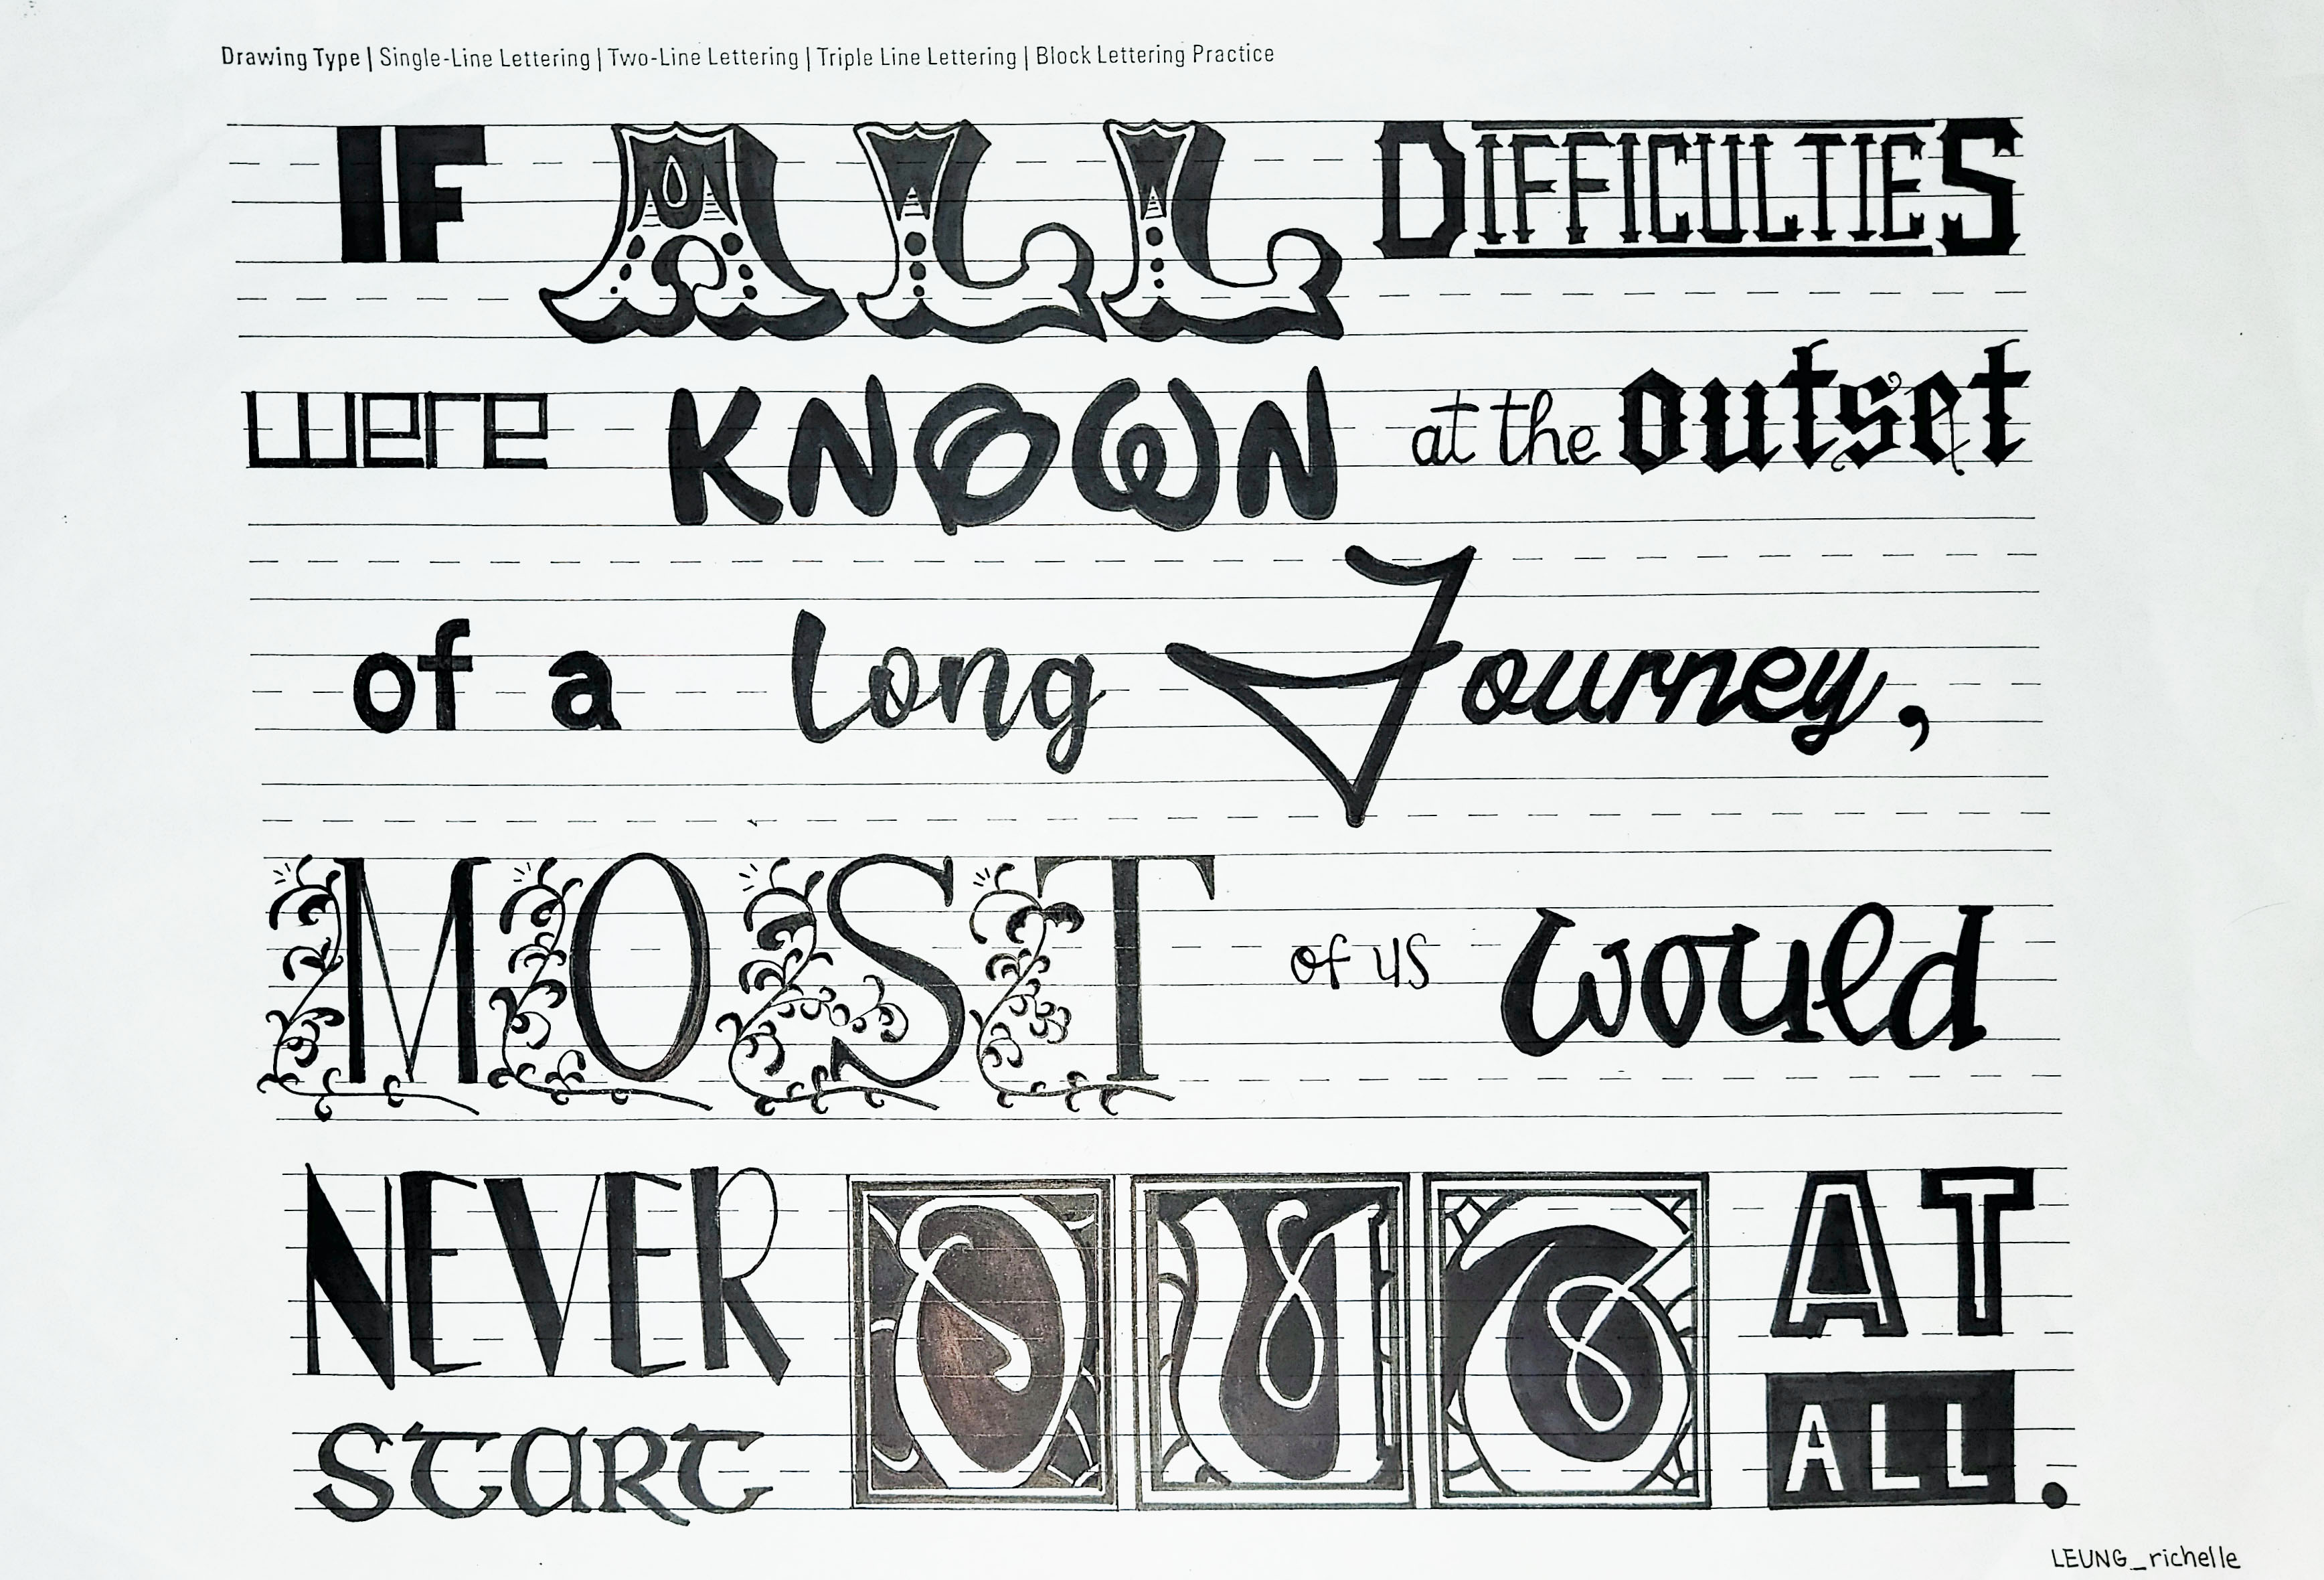 Drawing Type | Single-Line Lettering | Two-Line Lettering | Triple Line Lettering | Block Lettering Practice
IF ALL DIFFICULTIES
were KNOWN at the outset
of a long Journey,
MOST of us would
NEVER
START
OUT
AT
ALL.
LEUNG_richelle